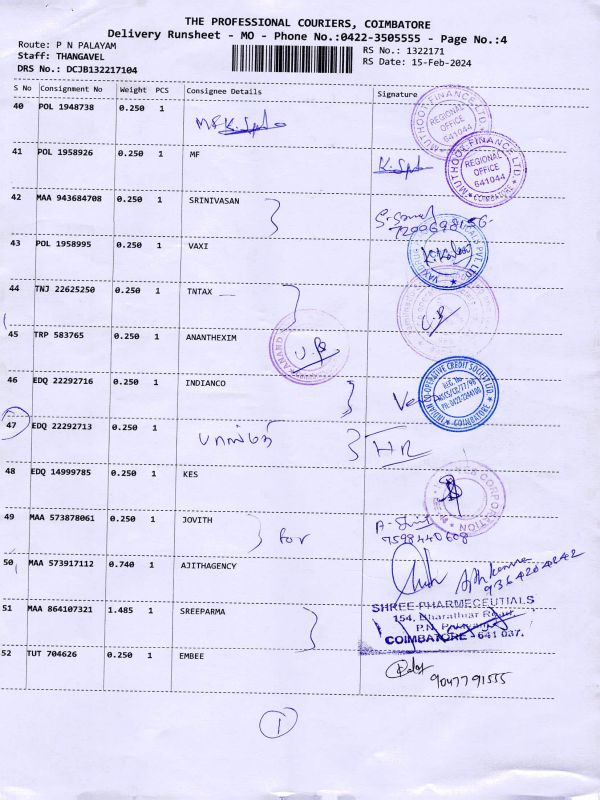 THE PROFESSIONAL COURIERS, COIMBATORE
Delivery Runsheet - MO - Phone No.:0422-3505555 - Page No.:4
Route: P N PALAYAM
RS No.: 1322171
Staff: THANGAVEL
RS Date: 15-Feb-2024
DRS No.: DCJB132217104
S No Consignment No Weight PCS Consignee Details Signature
40 POL 1948738 0.250 1
MUTHOOT FINANCE LTD. REGIONAL OFFICE 641044
41 POL 1958926 0.250 1 MF
MUTHOOT FINANCE LTD. REGIONAL OFFICE 641044 COIMBATORE
42 MAA 943684708 0.250 1 SRINIVASAN
43 POL 1958995 0.250 1 VAXI
44 TNJ 22625250 0.250 1 TNTAX
45 TRP 583765 0.250 1 ANANTHEXIM
46 EDQ 22292716 0.250 1 INDIANCO
47 EDQ 22292713 0.250 1
HR
48 EDQ 14999785 0.250 1 KES
CORPORATION
49 MAA 573878061 0.250 1 JOVITH
for
9598440608
50 MAA 573917112 0.740 1 AJITHAGENCY
9364204242
SHREE PHARMECEUTIALS
51 MAA 864107321 1.485 1 SREEPARMA
154, Bharathiar Road,
COIMBATORE - 641 037.
52 TUT 704626 0.250 1 EMBEE
9047791555
1